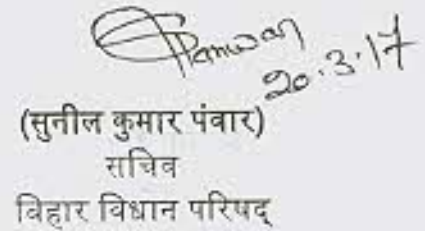 Panwar
20.3.17
(सुनील कुमार पंवार)
सचिव
बिहार विधान परिषद्